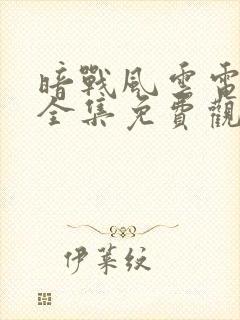 暗戰風雲電
全集免費觀
伊葉紋